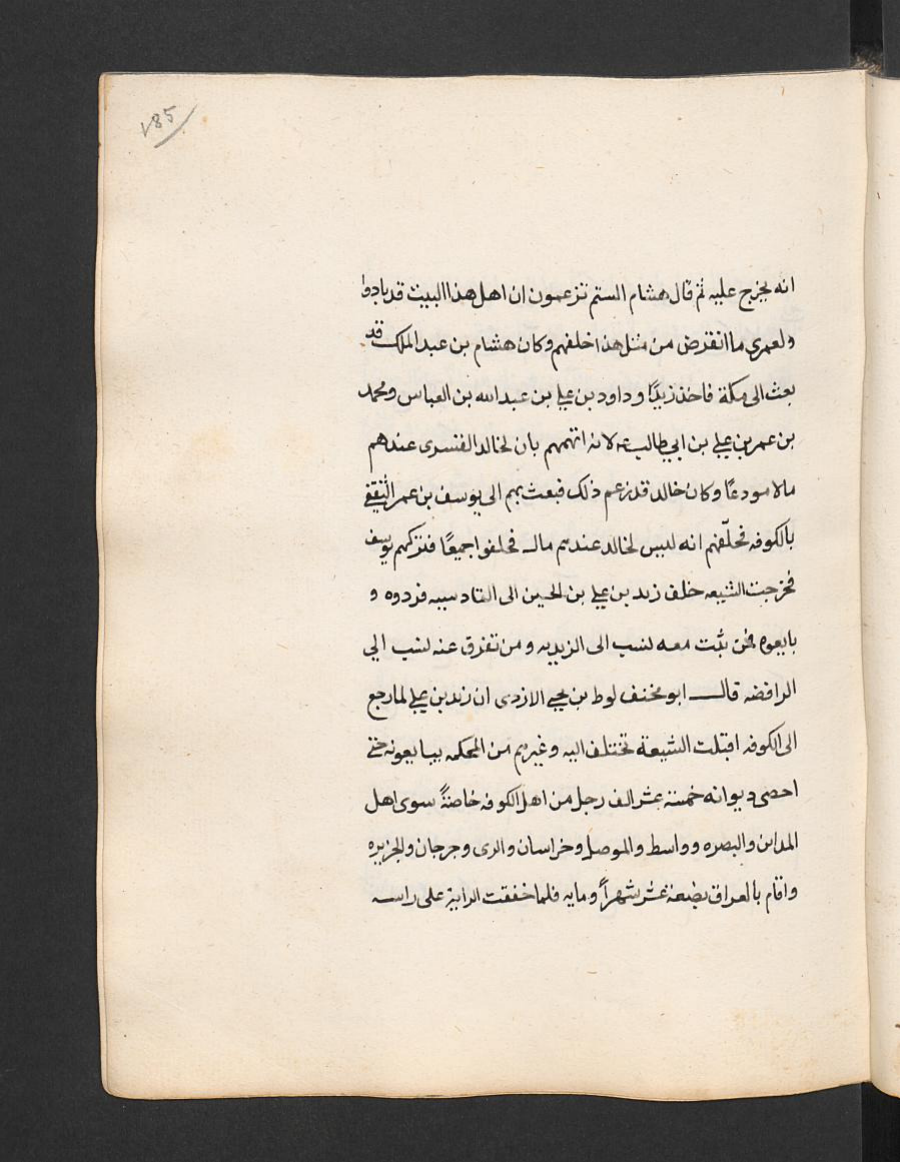 185
انه يخرج عليه ثم قال هشام الستم تزعمون ان اهل هذا البيت قد بادوا
ولعمرى ما انقرض من مثل هذا خلفهم وكان هشام بن عبد الملك قد
بعث الى مكة فاخذ زيدًا وداود بن علي بن عبد الله بن العباس ومحمد
بن عمر بن علي بن ابي طالب لانه اتهمهم بان لخالد القسرى عندهم
مالا مودعًا وكان خالد قد زعم ذلك فبعث بهم الى يوسف بن عمر الثقفي
بالكوفه فحلّفهم انه ليس لخالد عندهم مال فحلفوا جميعًا فتركهم يوسف
فخرجت الشيعه خلف زيد بن علي بن الحسين الى القادسيه فردوه و
بايعوه فمن ثبت معه نسب الى الزيديه ومن تفرق عنه نسب الي
الرافضه قال ابو مخنف لوط بن يحيى الازدى ان زيد بن علي لما رجع
الى الكوفه اقبلت الشيعة تختلف اليه وغيرهم من المحكمه يبايعونه حتى
احصى ديوانه خمسة عشر الف رجل من اهل الكوفه خاصةً سوى اهل
المداين والبصره وواسط والموصل وخراسان والرى وجرجان والجزيره
واقام بالعراق بضعة عشر شهراً ومايه فلما خفقت الراية على راسه